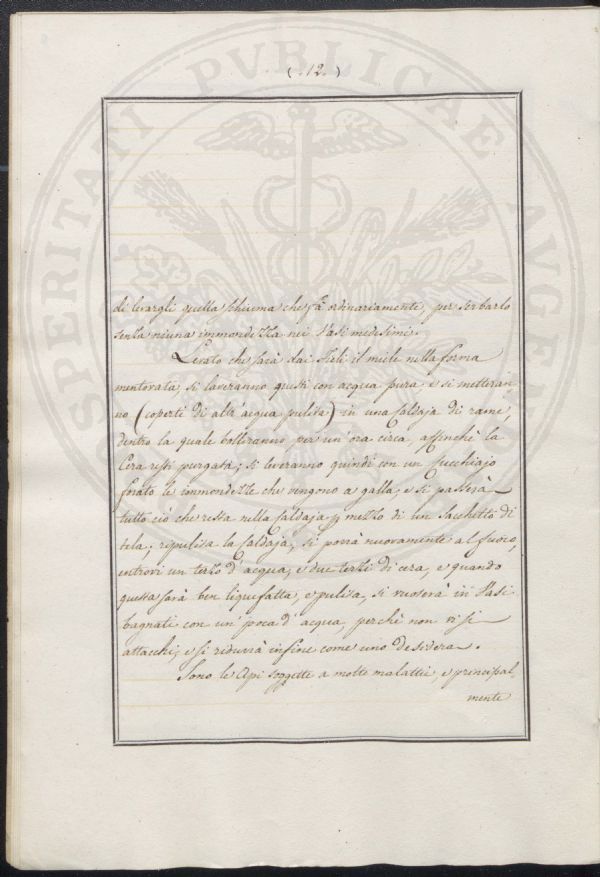 (.12.)
di levargli quella schiuma che fà ordinariamente, per serbarlo
senza niuna immondezza nei Vasi medesimi.
Levato che sarà dai Fieli il miele nella forma
mentovata, si laveranno questi con acqua pura, e si metteran,
no (coperti di altr'acqua pulita) in una Caldaja di rame,
dentro la quale bolliranno per un'ora circa, affinchè la
Cera resti purgata; si leveranno quindi con un Cucchiajo
forato le immondezze che vengono a galla, e si passerà
tutto ciò che resta nella Caldaja p mezzo di un Sacchetto di
tela; ripulita la Caldaja, si porrà nuovamente al fuoco,
entrovi un terzo d'acqua, e due terzi di cera, e quando
questa sarà ben liquefatta, e pulita, si vuoterà in Vasi
bagnati con un poca d'acqua, perchè non vi si
attacchi; e si ridurrà infine come uno desidera.
Sono le Api soggette a molte malattie, e principal,
mente
SPERITATI PVBLICAE AVGE